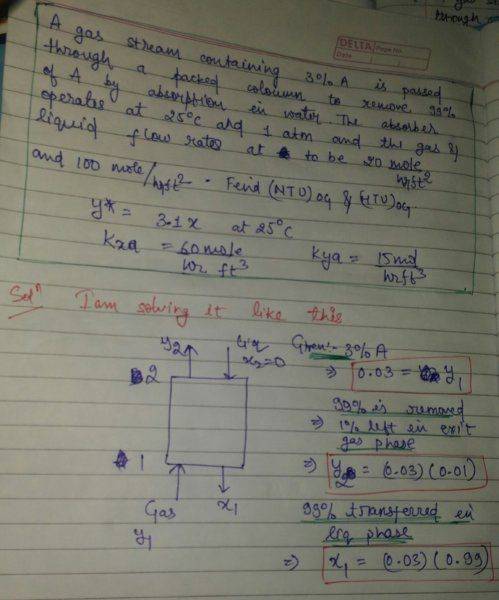 DELTA
Page No.
Date
A gas stream containing 3% A is passed
through a packed coloumn to remove 99%
of A by absorption in water The absorber
operates at 25°C and 1 atm and the gas &
liquid flow rates at to be 20 mole/hrft²
and 100 mole/hrft² . Find (NTU)OG & (HTU)OG.
y* = 3.1x at 25°C
Kxa = 60 mole/hr ft³ Kya = 15 mol/hrft³
Solⁿ I am solving it like this
y2 liq x2=0
2
1
Gas x1
y1
Given:- 3% A
⇒ 0.03 = y1
99% is removed
⇒ 1% left in exit
gas phase
⇒ y2 = (0.03)(0.01)
99% transferred in
liq phase
⇒ x1 = (0.03)(0.99)